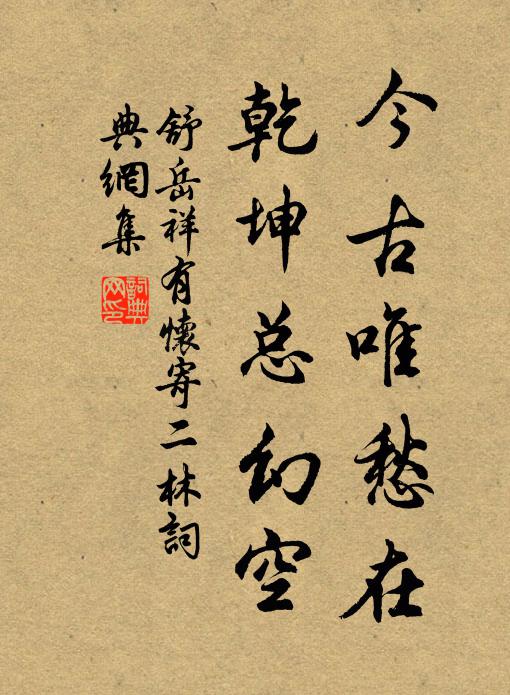 今古唯愁在
乾坤总幻空
舒岳祥有懷寄二林詞
典網集
詞典
网印